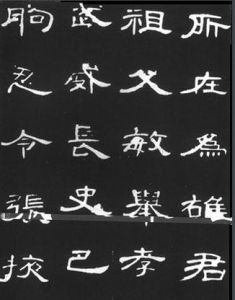 所在爲雄君
祖父敏舉孝
武威長史巴
朐忍令張掖